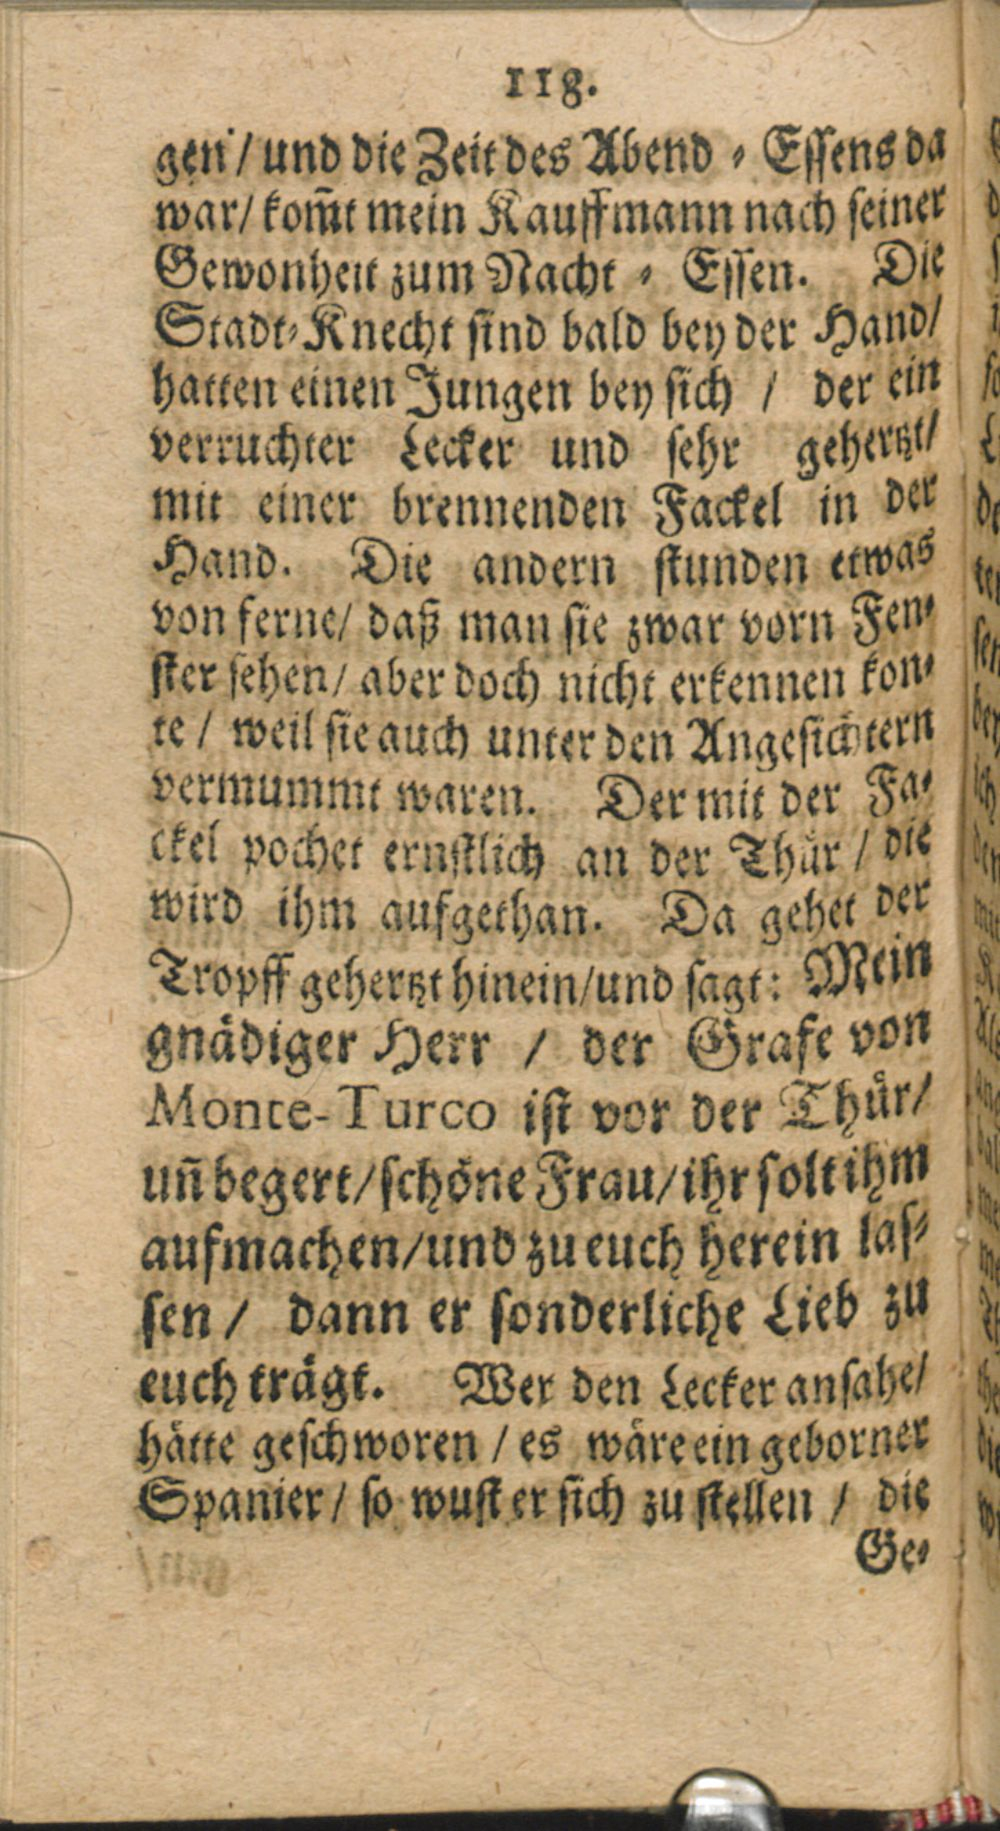 118.
gen / und die Zeit des Abend - Essens da
war / kom̃t mein Kauffmann nach seiner
Gewonheit zum Nacht - Essen. Die
Stadt-Knecht sind bald bey der Hand /
hatten einen Jungen bey sich / der ein
verruchter Lecker und sehr gehertzt /
mit einer brennenden Fackel in der
Hand. Die andern stunden etwas
von ferne / daß man sie zwar vorn Fen-
ster sehen / aber doch nicht erkennen kon-
te / weil sie auch unter den Angesichtern
vermummt waren. Der mit der Fa-
ckel pochet ernstlich an der Thür / die
wird ihm aufgethan. Da gehet der
Tropff gehertzt hinein / und sagt: Mein
gnädiger Herr / der Grafe von
Monte-Turco ist vor der Thür /
uñ begert / schöne Frau / ihr solt ihm
aufmachen / und zu euch herein las-
sen / dann er sonderliche Lieb zu
euch trägt. Wer den Lecker ansahe /
hätte geschworen / es wäre ein geborner
Spanier / so wust er sich zu stellen / die
Ge-